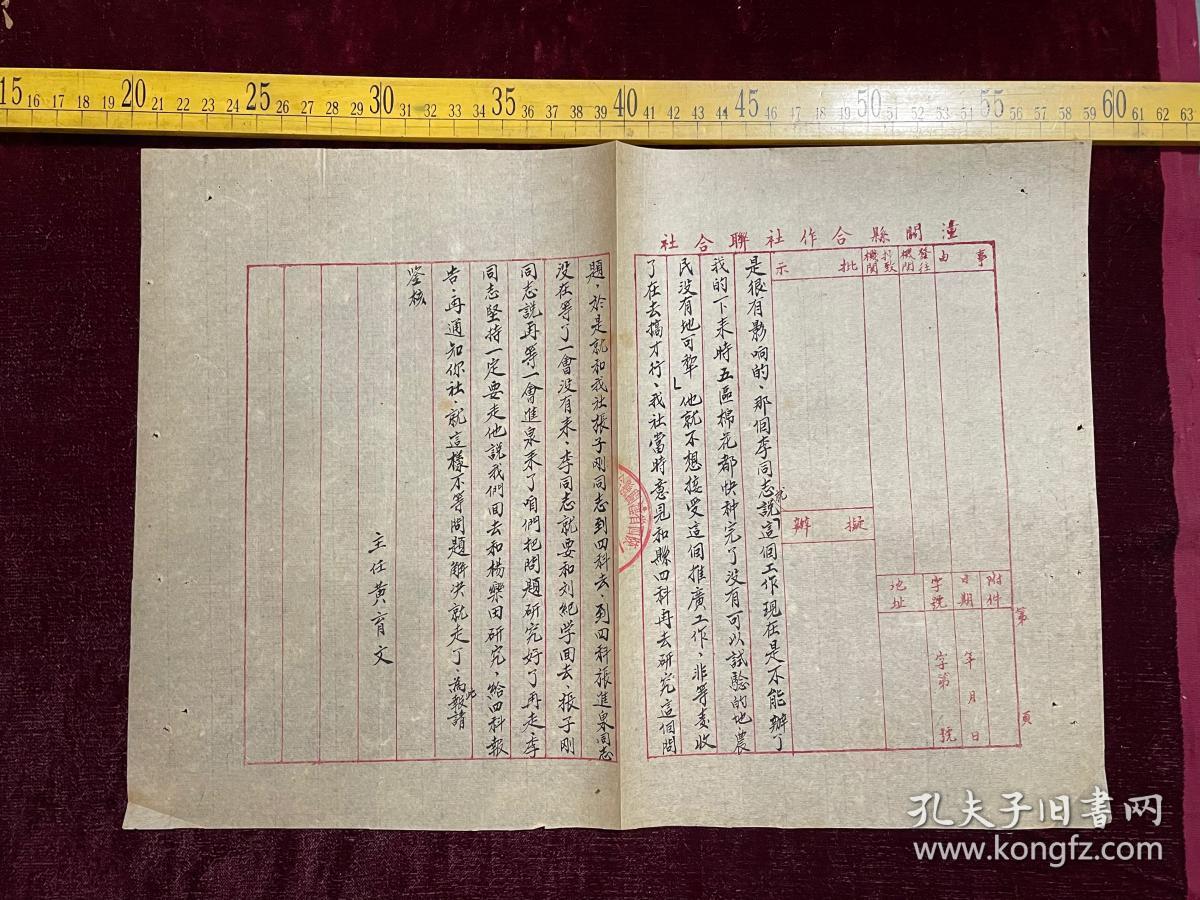 潼關縣合作社聯合社
事由
發往機關
抄致機關
批示
擬辦
附件
日期
字號
地址
年月日
字第號
第頁
是很有影响的、那個李同志就說「這個工作現在是不能辦了
我的下来時五區棉花都快种完了没有可以試驗的地農
民没有地可犂」他就不想接受這個推廣工作、非等麦收
了在去搞才行、我社當時意見和縣四科再去研究這個問
題、於是就和我社振子刚同志到四科去、到四科振進泉同志
没在等了一會没有来、李同志就要和刘纪学回去、振子刚
同志説再等一會進泉来了咱們把問題研究好了再走、李
同志堅持一定要走他説我們回去和楊樂田研究、給四科報
告、再通知你社、就這樣不等問題解决就走了、為此報請
鉴核
主任黄育文
15 16 17 18 19 20 21 22 23 24 25 26 27 28 29 30 31 32 33 34 35 36 37 38 39 40 41 42 43 44 45 46 47 48 49 50 51 52 53 54 55 56 57 58 59 60 61 62 63
孔夫子旧书网
www.kongfz.com